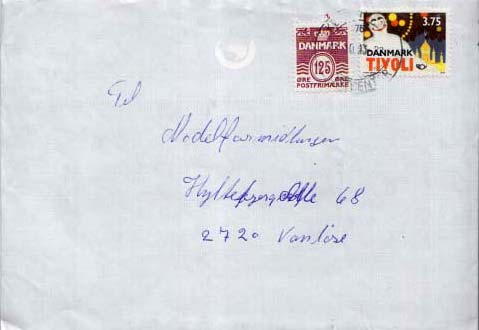 DANMARK
125
ØRE ØRE
POSTFRIMÆRKE
3.75
DANMARK
TIVOLI
Til
Modelformidlingen
68
2720 Vanløse